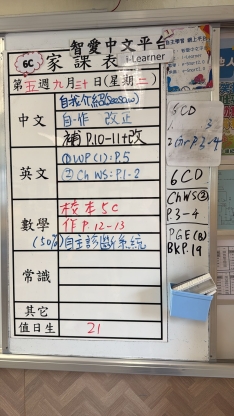 智愛中文平台
i-Learner
6C 家課表
第五週九月三十日(星期二)
中文
自我介紹(Seesaw)
自作 改正
補 P.10-11+改
英文
① WP(1): P.5
② Ch WS: P.1-2
數學
校本5C
作 P.12-13
(5C/6C)自主診斷系統
常識
其它
值日生 21
6CD
6CD
Ch WS ②
P.3-4
PGE(B)
BK P.19